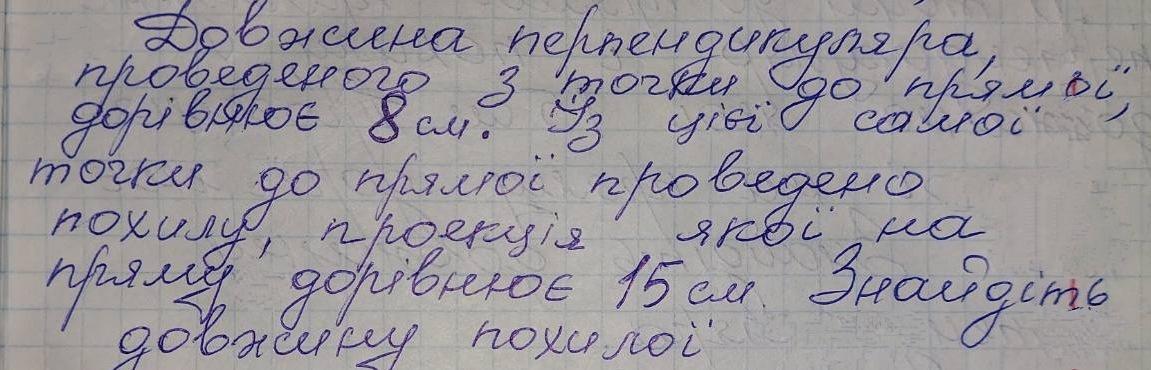 Довжина перпендикуляра,
проведеного з точки до прямої,
дорівнює 8 см. Із цієї самої
точки до прямої проведено
похилу, проекція якої на
пряму дорівнює 15 см. Знайдіть
довжину похилої